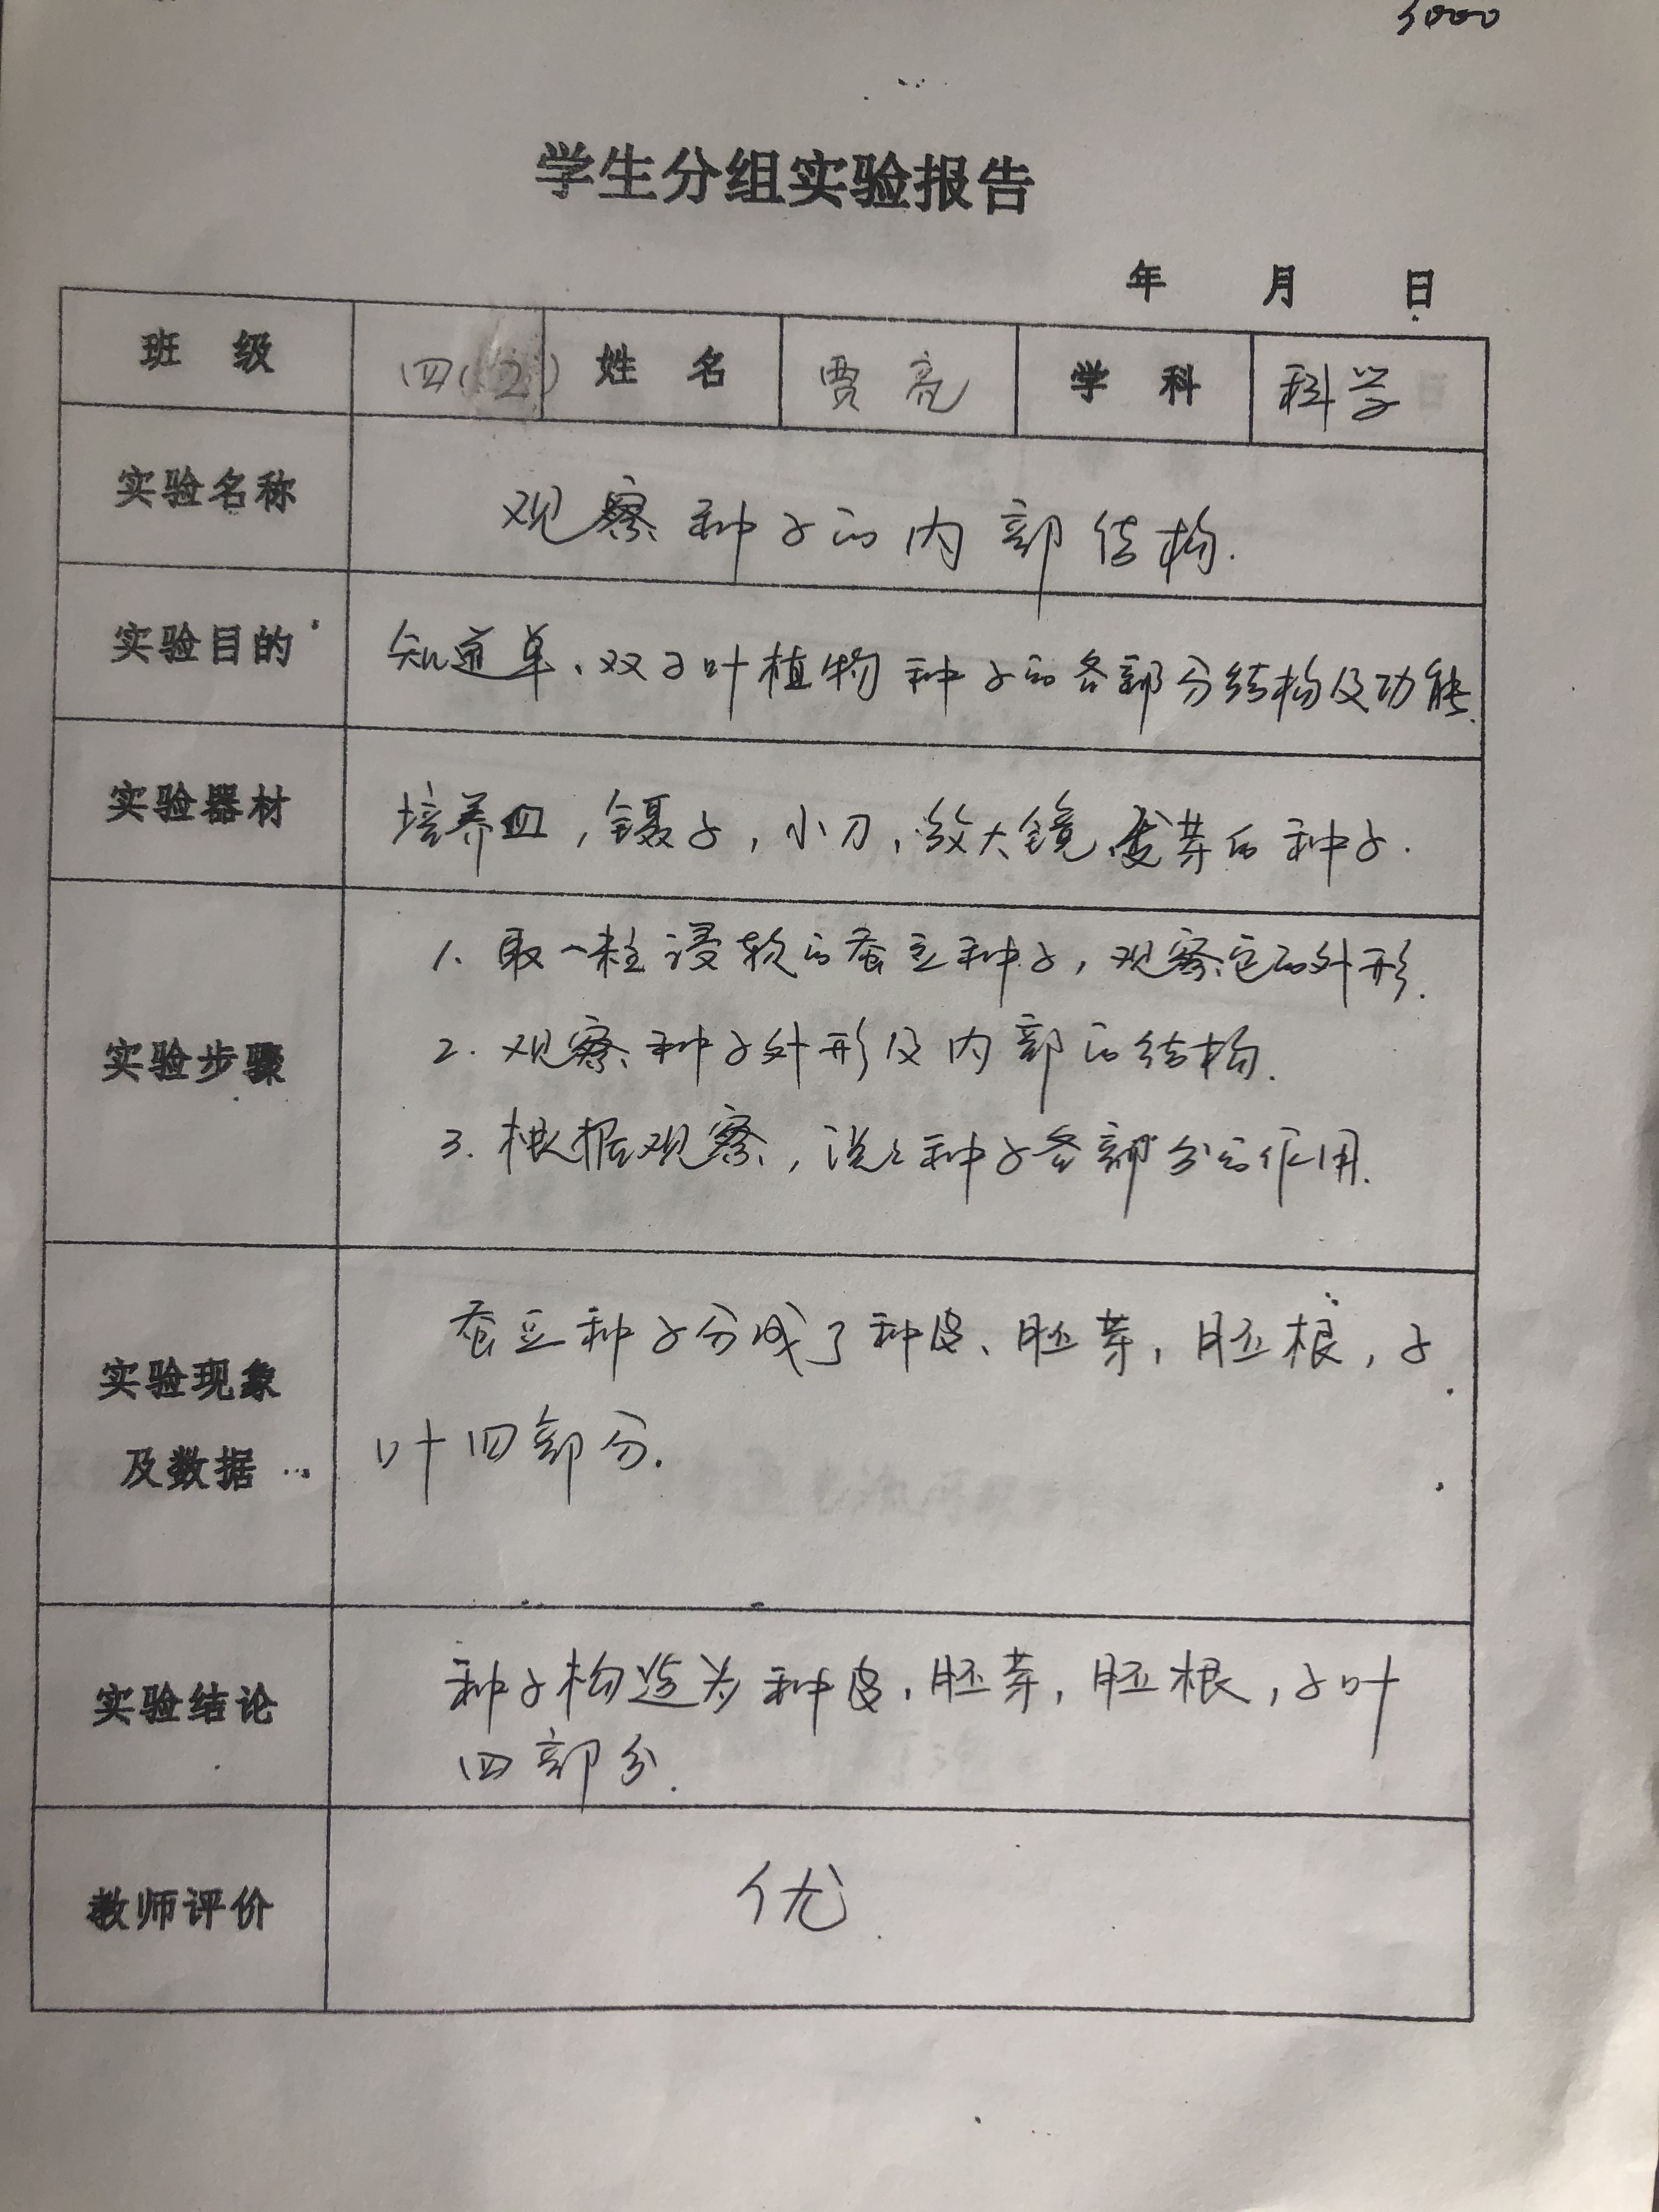 3000
学生分组实验报告
年 月 日
班 级 四(2) 姓 名 贾亮 学 科 科学
实验名称 观察种子的内部结构.
实验目的 知道单、双子叶植物种子的各部分结构及功能.
实验器材 培养皿,镊子,小刀,放大镜,发芽的种子.
1、取一粒浸软的蚕豆种子,观察它的外形.
2. 观察种子外形及内部的结构.
实验步骤
3. 根据观察,说说种子各部分的作用.
蚕豆种子分成了种皮、胚芽,胚根,子
实验现象
叶四部分.
及数据
种子构造为种皮,胚芽,胚根,子叶
实验结论
四部分.
教师评价 优